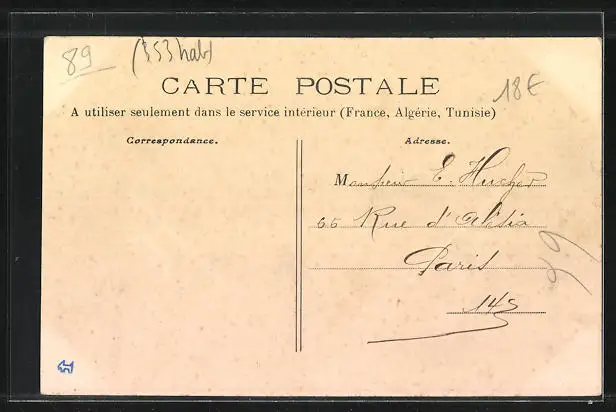 89
(353 hab)
CARTE POSTALE
18€
A utiliser seulement dans le service intérieur (France, Algérie, Tunisie)
Correspondance.
Adresse.
Monsieur E.
66 Rue d'Alésia
Paris
14e